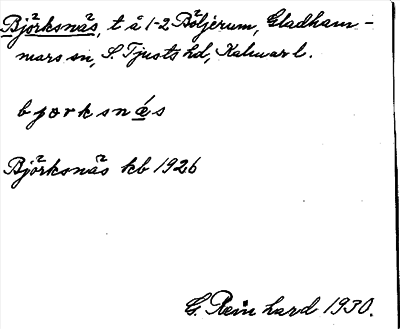 Björksnäs, t å 1-2 Böljerum, Gladham-
mars sn, S. Tjusts hd, Kalmar l.
bjœrksnǽs
Björksnäs kb 1926
G. Reinhard 1930.